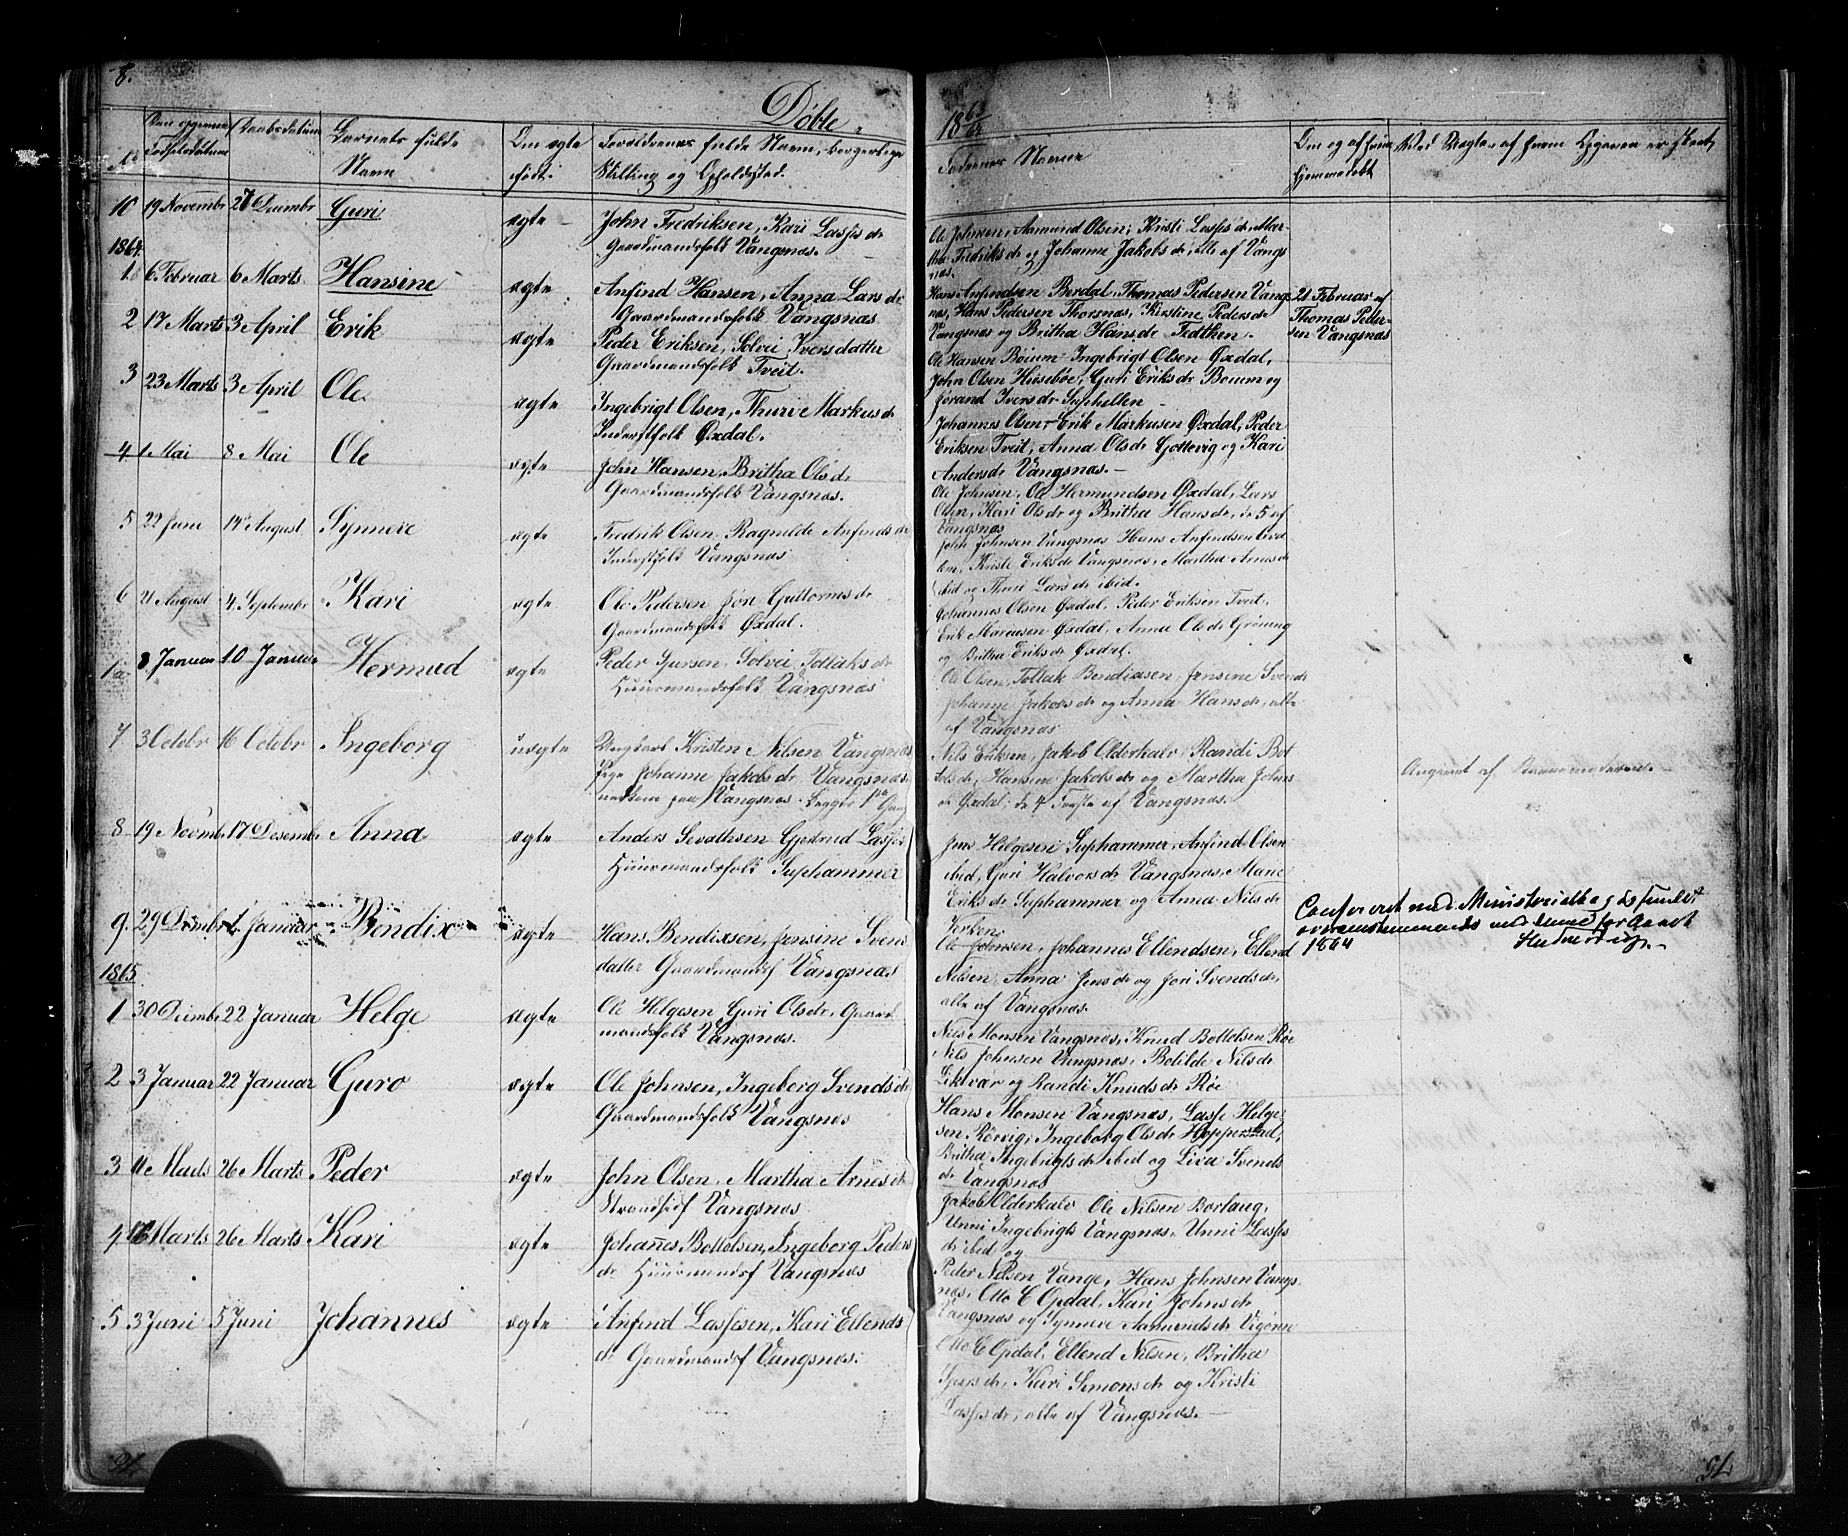 8.
Døbte.
No
Fødselsdatum
Daabsdatum
Barnets fulde
Navn
Om ægte
født.
Forældrenes fulde Navn, borgerlige
Stilling og Opholdssted.
10 19 Novembr 27 Decembr Guri ægte John Fredriksen, Kari Lasses dr
Gaardmandsfolk Vangsnæs.
1864.
1 6 Februar 6 Marts Hansine ægte Anfind Hansen, Anna Lars dr
Gaardmandsfolk Vangsnæs
2 17 Marts 3 April Erik ægte Peder Eriksen, Solvei Iversdatter
Gaardmandsfolk Tveit.
3 23 Marts 3 April Ole ægte Ingebrigt Olsen, Thuri Markus dr
Inderstfolk Øxdal.
4 1 Mai 8 Mai Ole ægte John Hansen, Britha Ols dr
Gaardmandsfolk Vangsnæs.
5 22 Juni 14 August Synneve ægte Fredrik Olsen, Ragnilde Anfinds dr
Inderstfolk Vangsnæs
6 21 August 4 Septembr Kari ægte Ole Pedersen Jori Guttorms dr
Gaardmandsfolk Øxdal.
1a 8 Januar 10 Januar Hermud ægte Peder Sjursen, Solvei Tollaks dr
Huusmandsfolk Vangsnæs
7 3 Octobr 16 Octobr Ingeborg uægte Ungkarl Kristen Nilsen Vangsnæs
Pige Johanne Jakobs dr Vangsnæs
Vangsnæs. Begges 1ste Gang
8 19 Novmbr 17 Desembr Anna ægte Anders Sevathsen Gjertrud Lasses
Huusmandsfolk Suphammer
9. 29 Decmbr 1 Januar Bendix ægte Hans Bendixsen, Jensine Svens
datter Gaardmandsf Vangsnæs
1865
1 30 Decmbr 22 Januar Helge ægte Ole Helgesen Guri Ols dr, Gaard
mandsfolk Vangsnæs.
2 3 Januar 22 Januar Guro ægte Ole Johnsen, Ingeborg Svends dr
Gaardmandsfolk Vangsnæs
3 11 Marts 26 Marts Peder ægte John Olsen, Martha Arnes dr
Strandsidf Vangsnæs
4 16 Marts 26 Marts Kari ægte Johannes Bottolsen, Ingeborg Peders
dr Huusmandsf Vangsnæs
5 3 Juni 5 Juni Johannes ægte Anfind Lassesen, Kari Ellends
dr Gaardmandsf Vangsnæs.
1863/65
Faddernes Navne
Om og af hvem
hjemmedøbt
Ole Johnsen, Aamund Olsen, Kristi Lasses dr, Mar-
tha Fredriks dr og Johanne Jakobs dr, alle af Vangs
næs.
Hans Anfindsen Berdal, Thomas Pedersen Vang-
næs, Hans Pedersen Thorsnæs, Kirstine Peders dr
Vangsnæs og Britha Hans dr Tedthen.
21 Februar af
Thomas Peder-
sen Vangsnæs
Ole Hansen Böium Ingebrigt Olsen Øxdal,
John Olsen Husebøe, Guri Eriks dr Boium og
Jorand Ivers dr Suphellen –
Johannes Olsen, Erik Markusen Øxdal, Peder
Eriksen Tveit, Anna Ols dr Gottevig og Kari
Anders dr Vangsnæs. –
Ole Johnsen, Ole Hermundsen Øxdal, Lars
Olsen, Kari Ols dr og Britha Hans dr, de 5 af
Vangsnæs
John Johnsen Vangsnæs Hans Anfindsen
Kristi Eriks dr Vangsnæs, Martha Arnes dr
ibid og Thuri Lars dr ibid.
Johannes Olsen Øxdal, Peder Eriksen Tveit,
Erik Marcusen Øxdal, Anna Ols dr Gröning
og Britha Eriks dr Øxdal.
Ole Olsen, Tollak Bendixsen, Jensine Svends
Johanne Jakobs dr og Anna Hans dr, alle
af Vangsnæs
Nils Eriksen, Jakob Olderkalv, Randi Bot
tols dr, Hansine Jakobs dr og Martha Johns
dr Øxdal, de 4 første af Vangsnæs.
Angivet af
Jens Helgesen Suphammer, Anfind Olsen
ibid, Guri Halvors dr Vangsnæs, Marie
Eriks dr Suphammer og Anna Nils dr
Confereret med Ministerialbog og funden
overensstemmende med denne for Aaret
1864
Ole Johnsen, Johannes Ellendsen, Ellend
Nilsen, Anna Jens dr og Jori Svends dr,
alle af Vangsnæs.
Nils Monsen Vangsnæs, Knud Bottolsen Röe
Nils Johnsen Vangsnæs, Botilde Nils dr
Liktvar og Randi Knuds dr Röe
Hans Monsen Vangsnæs, Lasse Helge
sen Rörvig, Ingeborg Ols dr Hopperstad,
Britha Ingebrigts dr ibid og Liva Svends
dr Vangsnæs
Jakob Olderkalv Ole Nilsen Borlaug,
Unni Ingebrigts Vangsnæs, Unni Lasses
dr ibid og
Peder Nilsen Vange, Hans Johnsen Vangs
næs, Otto E Opdal, Kari Johns dr
Vangsnæs og Synneve Aamunds dr
Otto E Opdal, Ellend Nilsen, Britha
Sjurs dr, Kari Simons dr og Kristi
Lasses dr, alle af Vangsnæs. –